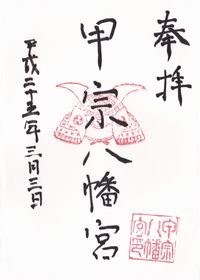 奉拝
甲宗八幡宮
平成二十五年三月三日
甲宗八幡宮印